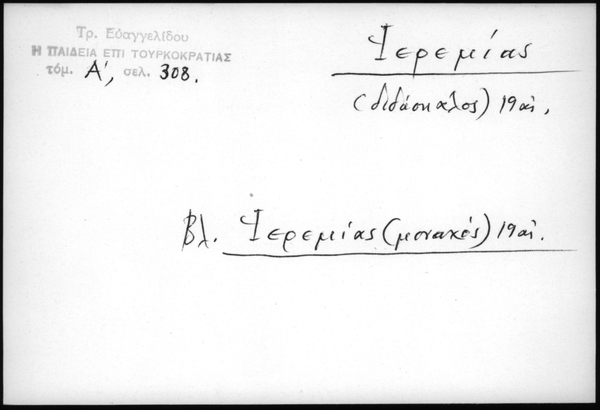 Τρ. Εὐαγγελίδου
Η ΠΑΙΔΕΙΑ ΕΠΙ ΤΟΥΡΚΟΚΡΑΤΙΑΣ
τόμ. Α', σελ. 308.
Ἱερεμίας
(διδάσκαλος) 19 αἰ.
Βλ. Ἱερεμίας (μοναχός) 19 αἰ.